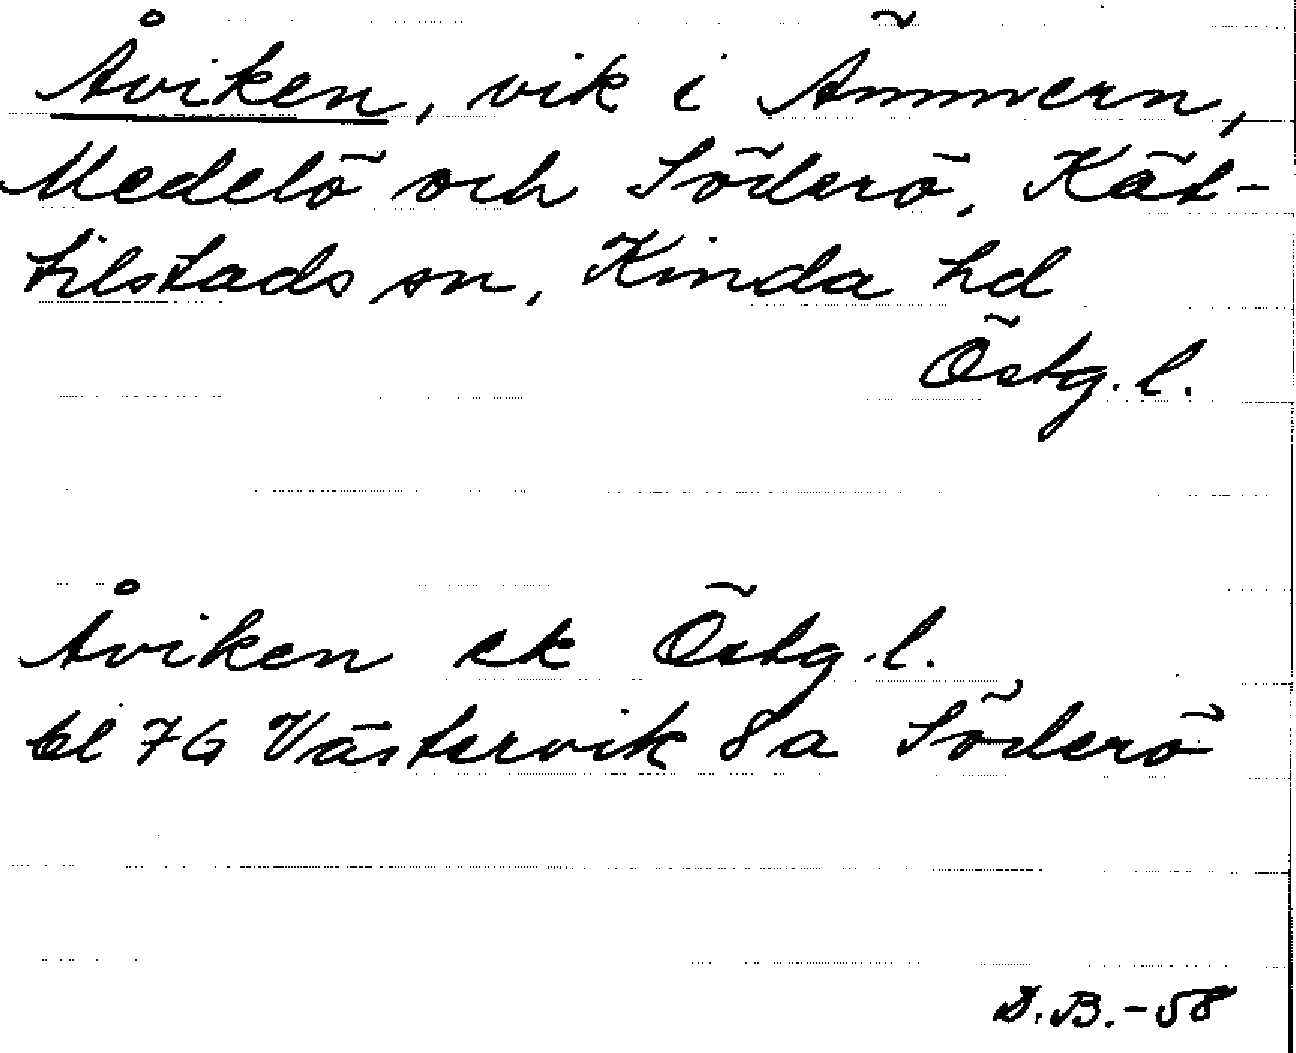 Åviken, vik i Ämmern,
Medelö och Söderö, Kät-
tilstads sn, Kinda hd
Östg. l.
Åviken ek Östg. l.
bl 7G Västervik 8a Söderö
D.B.-58